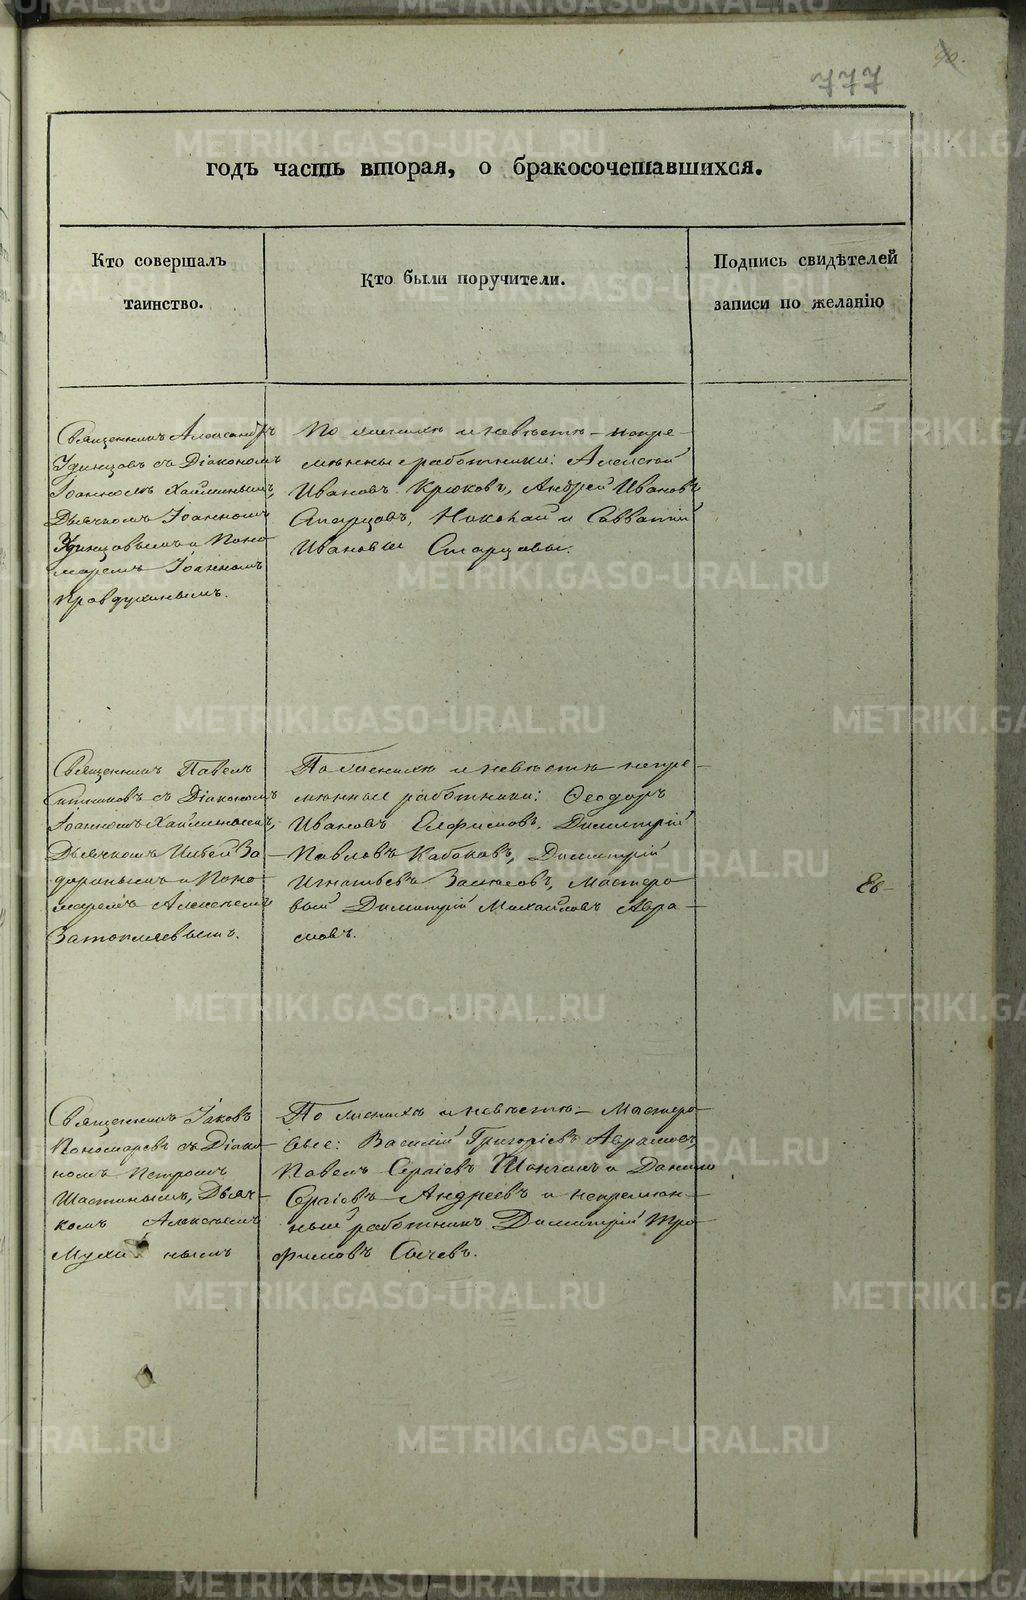 777
годъ часть вторая, о бракосочетавшихся.
Кто совершалъ
таинство.
Кто были поручители.
Подпись свидѣтелей
записи по желанію
Священникъ Александръ
Удинцовъ съ Діакономъ
Іоанномъ Хайминымъ,
Дьячкомъ Іоанномъ
Удинцовымъ и Поно-
маремъ Іоанномъ
Правдухинымъ.
По женихѣ и невѣстѣ – непре-
мѣнные работники: Алексѣй
Ивановъ Крюковъ, Андрей Ивановъ
Старцовъ, Николай и Савватій
Ивановы Старцовы.
Священникъ Павелъ
Ситниковъ съ Діакономъ
Іоанномъ Хайминымъ,
Дьячкомъ
и Поно-
маремъ Алексѣемъ
По женихѣ и невѣстѣ непре-
мѣнные работники: Ѳеодоръ
Ивановъ Елфимовъ, Димитрій
Павловъ Кабаковъ, Димитрій
Игнатьевъ Мастеро-
вый Димитрій Михайловъ Авра-
мовъ.
Священникъ Іаковъ
Пономаревъ съ Діако-
номъ Петромъ
Дьяч-
комъ Алексѣемъ
Мухинымъ
По женихѣ и невѣстѣ – Мастеро-
вые: Василій Григоріевъ Аврамовъ,
Павелъ Сергіевъ и Данило
Сергіевъ Андреевъ и непремѣн-
ный работникъ Димитрій Тро-
фимовъ Сычевъ.
METRIKI.GASO-URAL.RU